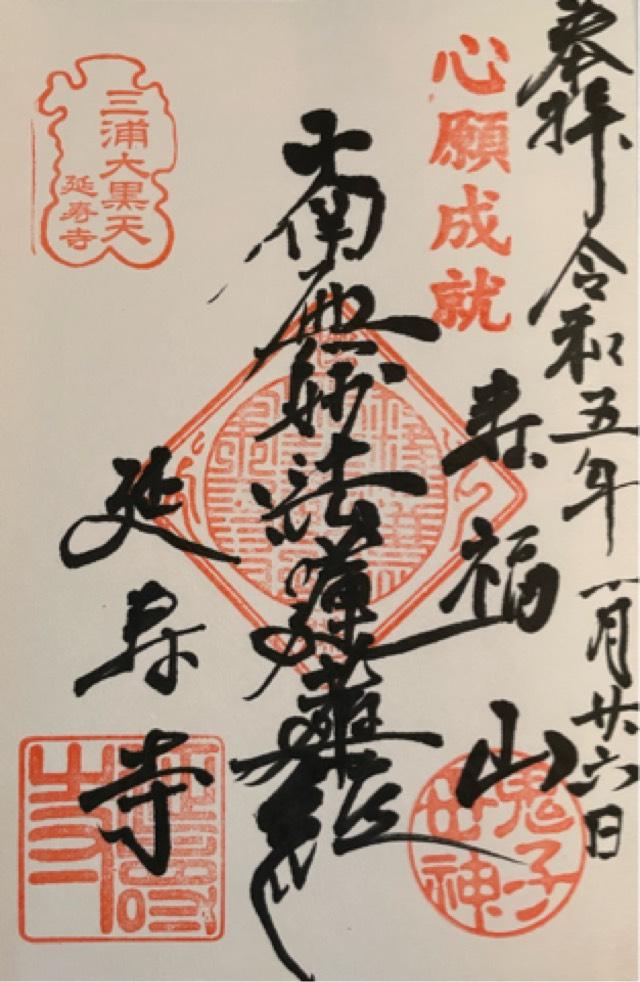 奉拝 令和五年一月廿六日
心願成就
寿福山
南無妙法蓮華経
三浦大黒天
延寿寺
延寿寺
鬼子母神